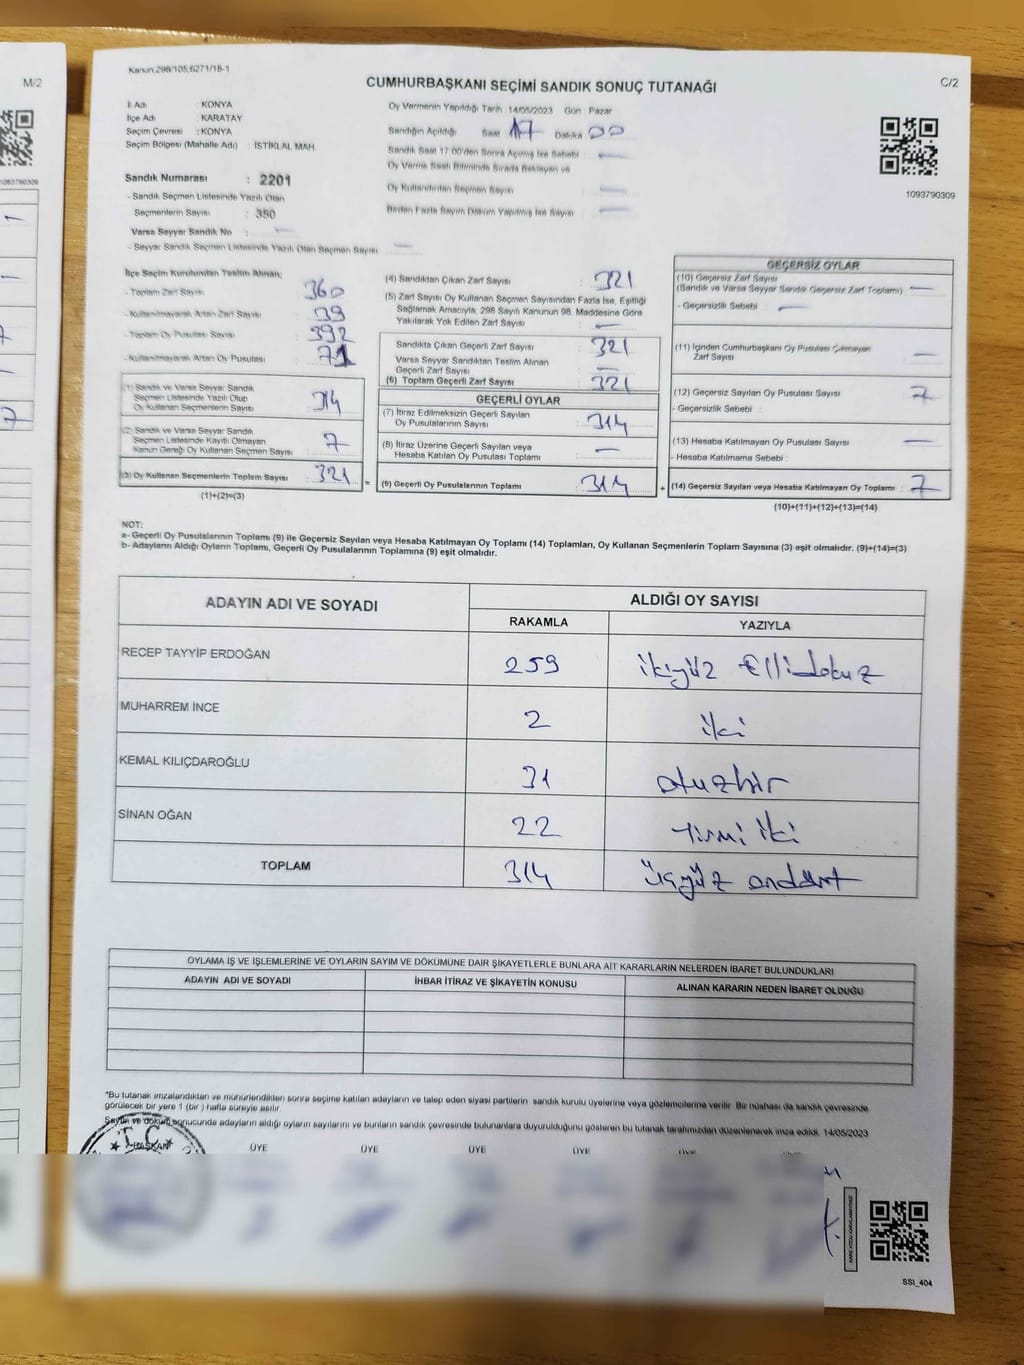 M/2
1093790309
Kanun.298/105,6271/18-1
CUMHURBAŞKANI SEÇİMİ SANDIK SONUÇ TUTANAĞI
C/2
İl Adı : KONYA
İlçe Adı : KARATAY
Seçim Çevresi : KONYA
Seçim Bölgesi (Mahalle Adı) : İSTİKLAL MAH.
Oy Vermenin Yapıldığı Tarih : 14/05/2023 Gün : Pazar
Sandığın Açıldığı Saat 17 Dakika 00
Sandık Saat 17:00'den Sonra Açılmış İse Sebebi : —
Oy Verme Saati Bitiminde Sırada Bekleyen ve
Oy Kullandırılan Seçmen Sayısı : —
Birden Fazla Sayım Döküm Yapılmış İse Sayısı : —
1093790309
Sandık Numarası : 2201
- Sandık Seçmen Listesinde Yazılı Olan
Seçmenlerin Sayısı : 350
Varsa Seyyar Sandık No : —
- Seyyar Sandık Seçmen Listesinde Yazılı Olan Seçmen Sayısı : —
İlçe Seçim Kurulundan Teslim Alınan;
- Toplam Zarf Sayısı : 360
- Kullanılmayarak Artan Zarf Sayısı : 39
- Toplam Oy Pusulası Sayısı : 392
- Kullanılmayarak Artan Oy Pusulası : 71
(1) Sandık ve Varsa Seyyar Sandık
Seçmen Listesinde Yazılı Olup
Oy Kullanan Seçmenlerin Sayısı : 314
(2) Sandık ve Varsa Seyyar Sandık
Seçmen Listesinde Kayıtlı Olmayan
Kanun Gereği Oy Kullanan Seçmen Sayısı : 7
(3) Oy Kullanan Seçmenlerin Toplam Sayısı : 321
(1)+(2)=(3)
=
(4) Sandıktan Çıkan Zarf Sayısı : 321
(5) Zarf Sayısı Oy Kullanan Seçmen Sayısından Fazla İse, Eşitliği
Sağlamak Amacıyla; 298 Sayılı Kanunun 98. Maddesine Göre
Yakılarak Yok Edilen Zarf Sayısı : —
Sandıkta Çıkan Geçerli Zarf Sayısı : 321
Varsa Seyyar Sandıktan Teslim Alınan
Geçerli Zarf Sayısı : —
(6) Toplam Geçerli Zarf Sayısı : 321
GEÇERLİ OYLAR
(7) İtiraz Edilmeksizin Geçerli Sayılan
Oy Pusulalarının Sayısı : 314
(8) İtiraz Üzerine Geçerli Sayılan veya
Hesaba Katılan Oy Pusulası Toplamı : —
(9) Geçerli Oy Pusulalarının Toplamı : 314
+
GEÇERSİZ OYLAR
(10) Geçersiz Zarf Sayısı
(Sandık ve Varsa Seyyar Sandık Geçersiz Zarf Toplamı) : —
- Geçersizlik Sebebi : —
(11) İçinden Cumhurbaşkanı Oy Pusulası Çıkmayan
Zarf Sayısı : —
(12) Geçersiz Sayılan Oy Pusulası Sayısı : 7
- Geçersizlik Sebebi :
(13) Hesaba Katılmayan Oy Pusulası Sayısı : —
- Hesaba Katılmama Sebebi :
(14) Geçersiz Sayılan veya Hesaba Katılmayan Oy Toplamı : 7
(10)+(11)+(12)+(13)=(14)
NOT:
a- Geçerli Oy Pusulalarının Toplamı (9) ile Geçersiz Sayılan veya Hesaba Katılmayan Oy Toplamı (14) Toplamları, Oy Kullanan Seçmenlerin Toplam Sayısına (3) eşit olmalıdır. (9)+(14)=(3)
b- Adayların Aldığı Oyların Toplamı, Geçerli Oy Pusulalarının Toplamına (9) eşit olmalıdır.
ADAYIN ADI VE SOYADI ALDIĞI OY SAYISI
RAKAMLA YAZIYLA
RECEP TAYYİP ERDOĞAN 259 ikiyüz Ellidokuz
MUHARREM İNCE 2 iki
KEMAL KILIÇDAROĞLU 31 otuzbir
SİNAN OĞAN 22 Yirmi iki
TOPLAM 314 üçyüz ondört
OYLAMA İŞ VE İŞLEMLERİNE VE OYLARIN SAYIM VE DÖKÜMÜNE DAİR ŞİKAYETLERLE BUNLARA AİT KARARLARIN NELERDEN İBARET BULUNDUKLARI
ADAYIN ADI VE SOYADI İHBAR İTİRAZ VE ŞİKAYETİN KONUSU ALINAN KARARIN NEDEN İBARET OLDUĞU
"Bu tutanak imzalandıktan ve mühürlendikten sonra seçime katılan adayların ve talep eden siyasi partilerin sandık kurulu üyelerine veya gözlemcilerine verilir. Bir nüshası da sandık çevresinde
görülecek bir yere 1 (bir ) hafta süreyle asılır.
Sayım ve döküm sonucunda adayların aldığı oyların sayılarını ve bunların sandık çevresinde bulunanlara duyurulduğunu gösteren bu tutanak tarafımızdan düzenlenerek imza edildi. 14/05/2023
T.C.
BAŞKAN ÜYE ÜYE ÜYE ÜYE
SSI_404